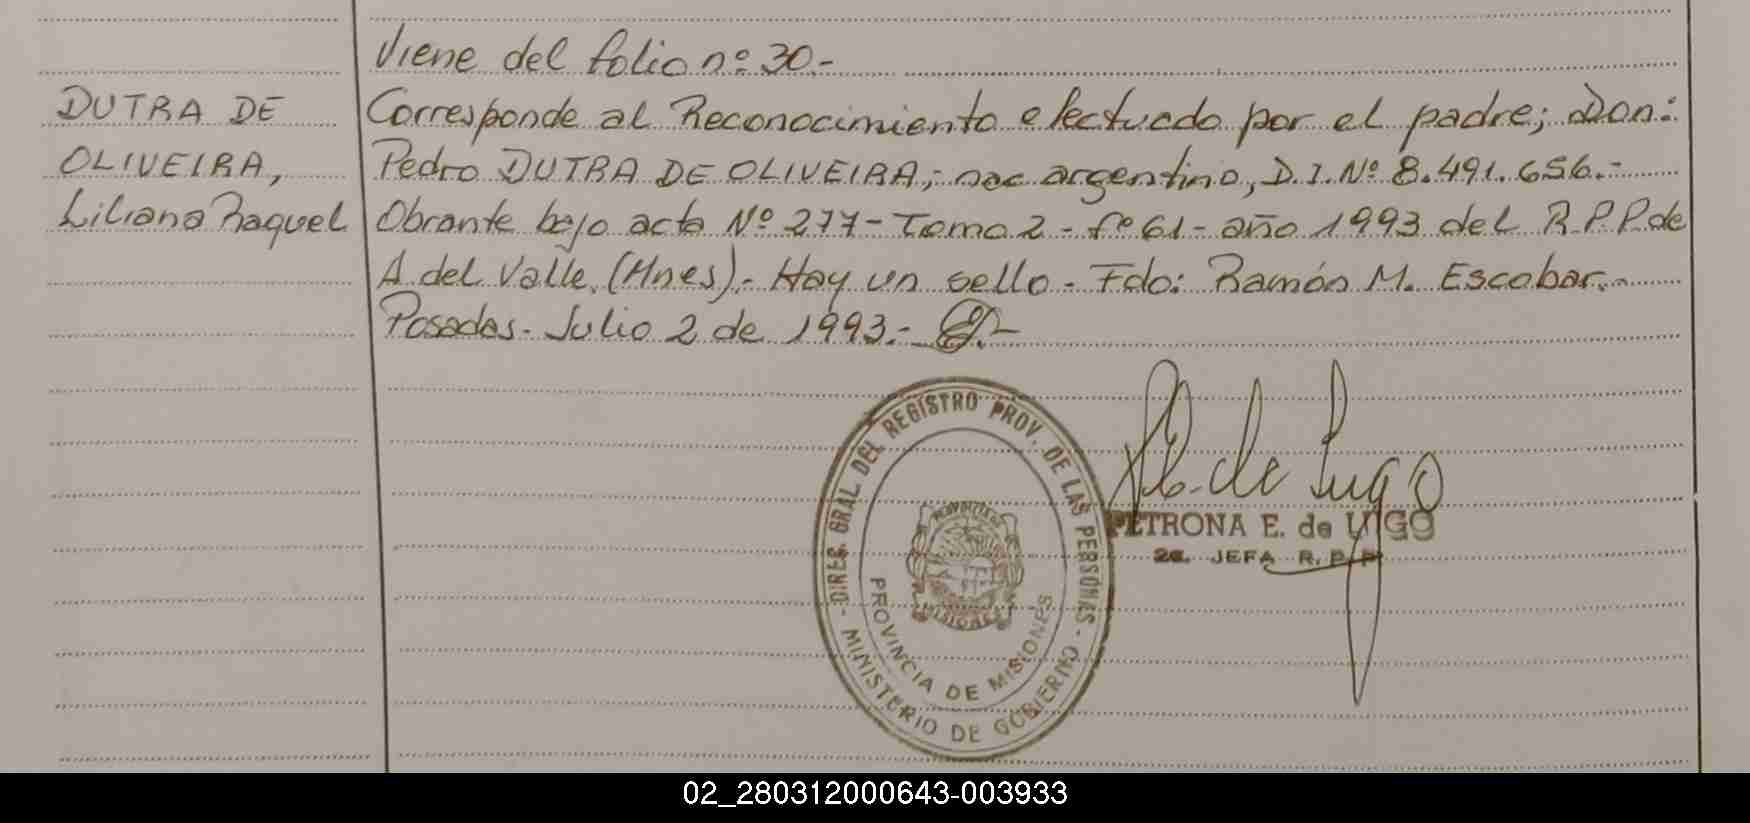 Viene del folio nº 30.-
DUTRA DE
OLIVEIRA,
Liliana Raquel
Corresponde al Reconocimiento efectuado por el padre; Don:
Pedro DUTRA DE OLIVEIRA; nac argentino, D.I.Nº 8.491.656.-
Obrante bajo acta Nº 277- Tomo 2 - Fº 61- año 1993 del R.P.P. de
A. del Valle, (Mnes).- Hay un sello.- Fdo: Ramón M. Escobar.-
Posadas. Julio 2 de 1993.-
- DIREC. GRAL DEL REGISTRO PROV. DE LAS PERSONAS -
MINISTERIO DE GOBIERNO
PROVINCIA DE MISIONES
PROVINCIA DE
MISIONES
de Lugo
PETRONA E. de LUGO
2a. JEFA R. P. P.
02_280312000643-003933